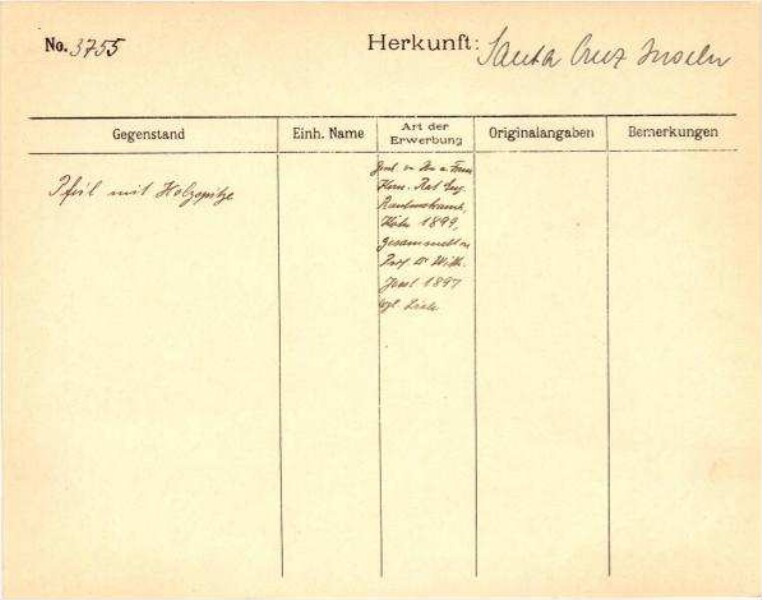 No. 3755
Herkunft: Santa Cruz Inseln
Gegenstand
Einh. Name
Art der Erwerbung
Originalangaben
Bemerkungen
Pfeil mit Holzspitze
Gesch. v. Hr. u. Frau
Kom. Rat Eug.
Rautenstrauch,
Köln 1899,
gesammelt v.
Prof. Dr. Wilh.
Joest 1897
vgl. Liste